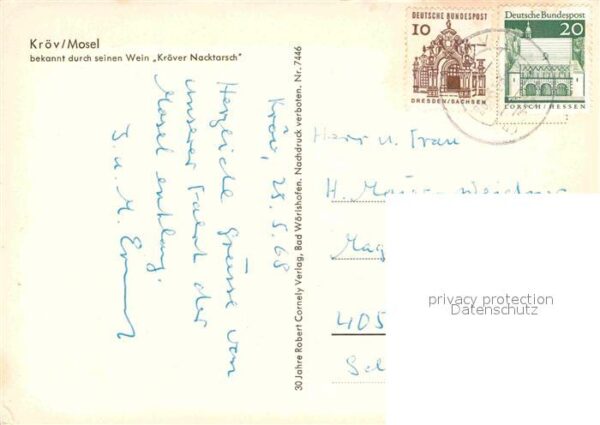 Kröv/Mosel
bekannt durch seinen Wein „Kröver Nacktarsch"
Kröv, 28.5.68
Herzliche Grüsse von
unserer Fahrt der
Mosel entlang.
J. u. M.
30 Jahre Robert Cornely Verlag, Bad Wörishofen. Nachdruck verboten. Nr. 7446
DEUTSCHE BUNDESPOST
10
DRESDEN/SACHSEN
Deutsche Bundespost
20
LORSCH/HESSEN
Herr u. Frau
H.
Mag
405
privacy protection
Datenschutz